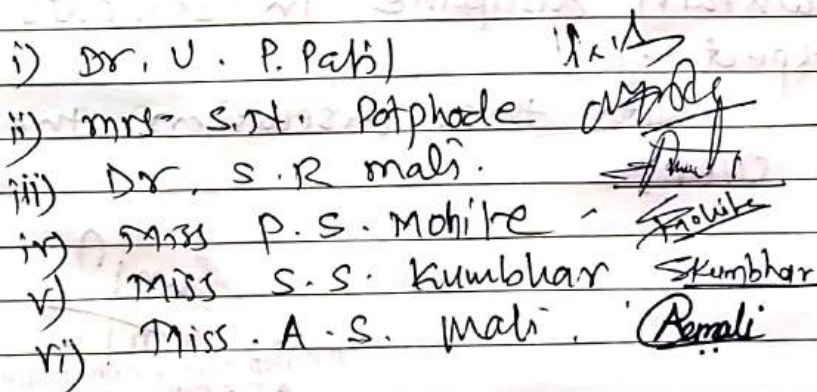 i) Dr. U. P. Patil
ii) mrs- S.N. Potphode
iii) Dr. S.R mali.
iv) Miss P.S. Mohite - Mohite
v) Miss S.S. Kumbhar Skumbhar
vi) Miss. A.S. Mali. Asmali